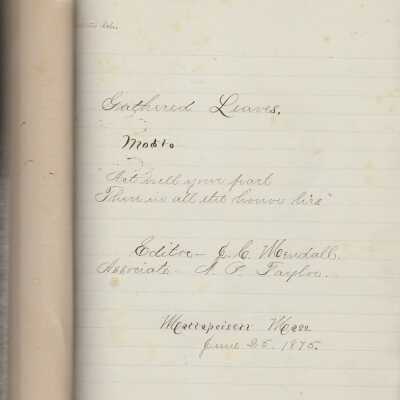 Gathered Leaves.
Motto
"Act well your part
There in all the honor lies"
Editor - J. C. Mendall.
Associate - N. P. Taylor.
Mattapoisett Mass
June 25, 1875.